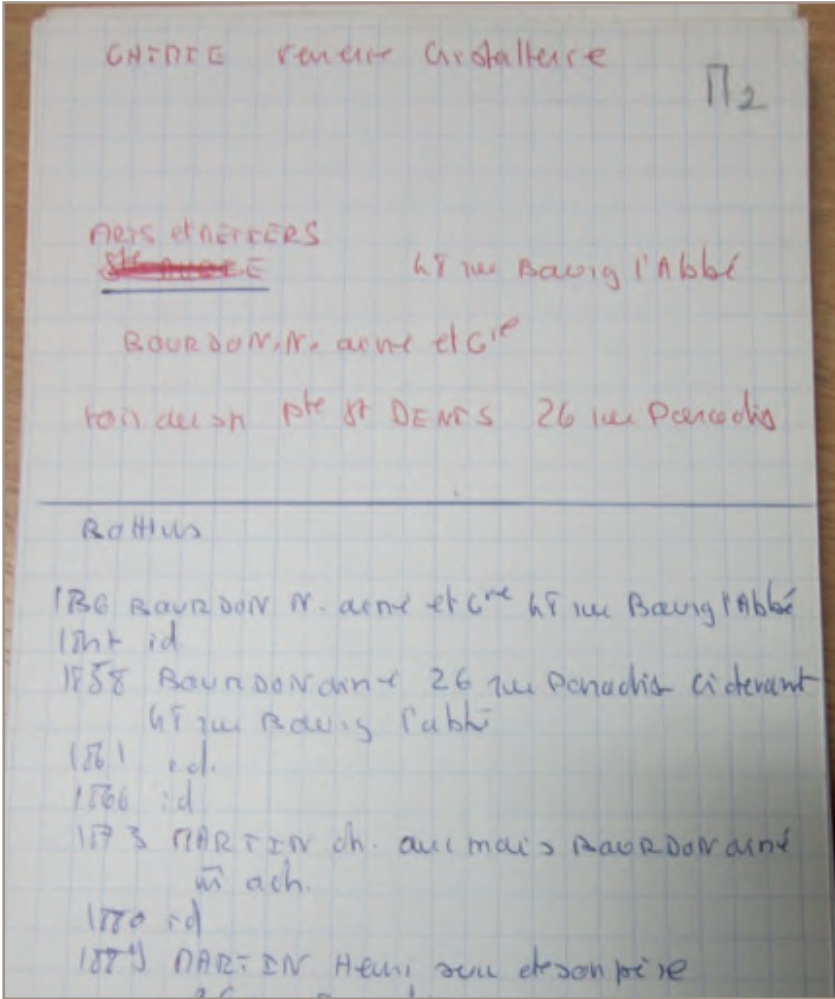 CHIMIE verrerie Cristallerie
M2
ARTS et METIERS
48 rue Bourg l'Abbé
BOURDON. N. aîné et Cie
pte St DENIS 26 rue Paradis
Bottins
BOURDON N. aîné et Cie 48 rue Bourg l'Abbé
id.
1858 BOURDON aîné 26 rue Paradis ci devant
48 rue Bourg l'abbé
1861 id.
1866 id
1873 MARTIN ch. anc mais BOURDON aîné
m ach.
1880 id
MARTIN Henri succ de son père